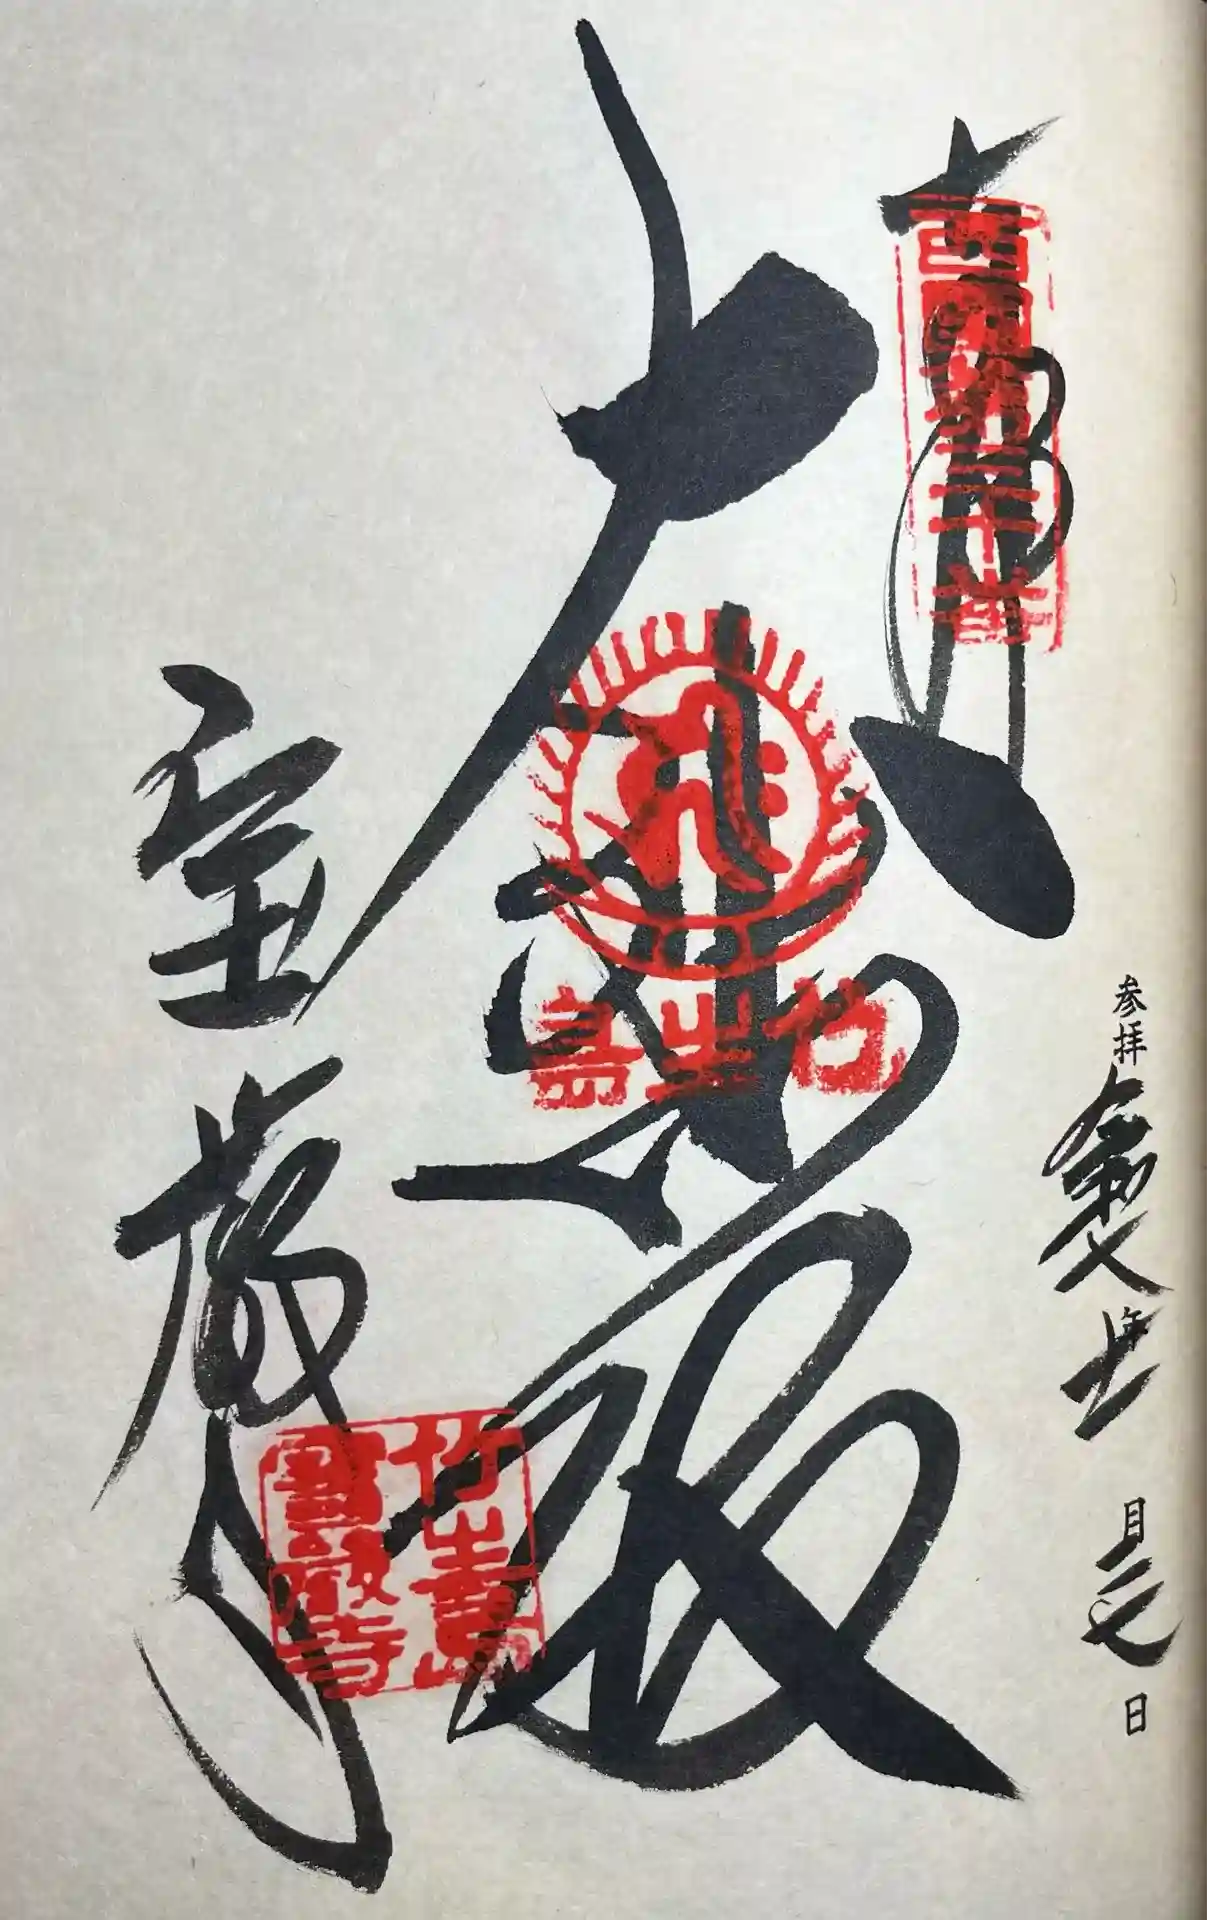 西國第三十番
大悲殿
竹生島
宝厳寺
竹生島
寳嚴寺
参拝 令和七年十一月二七日